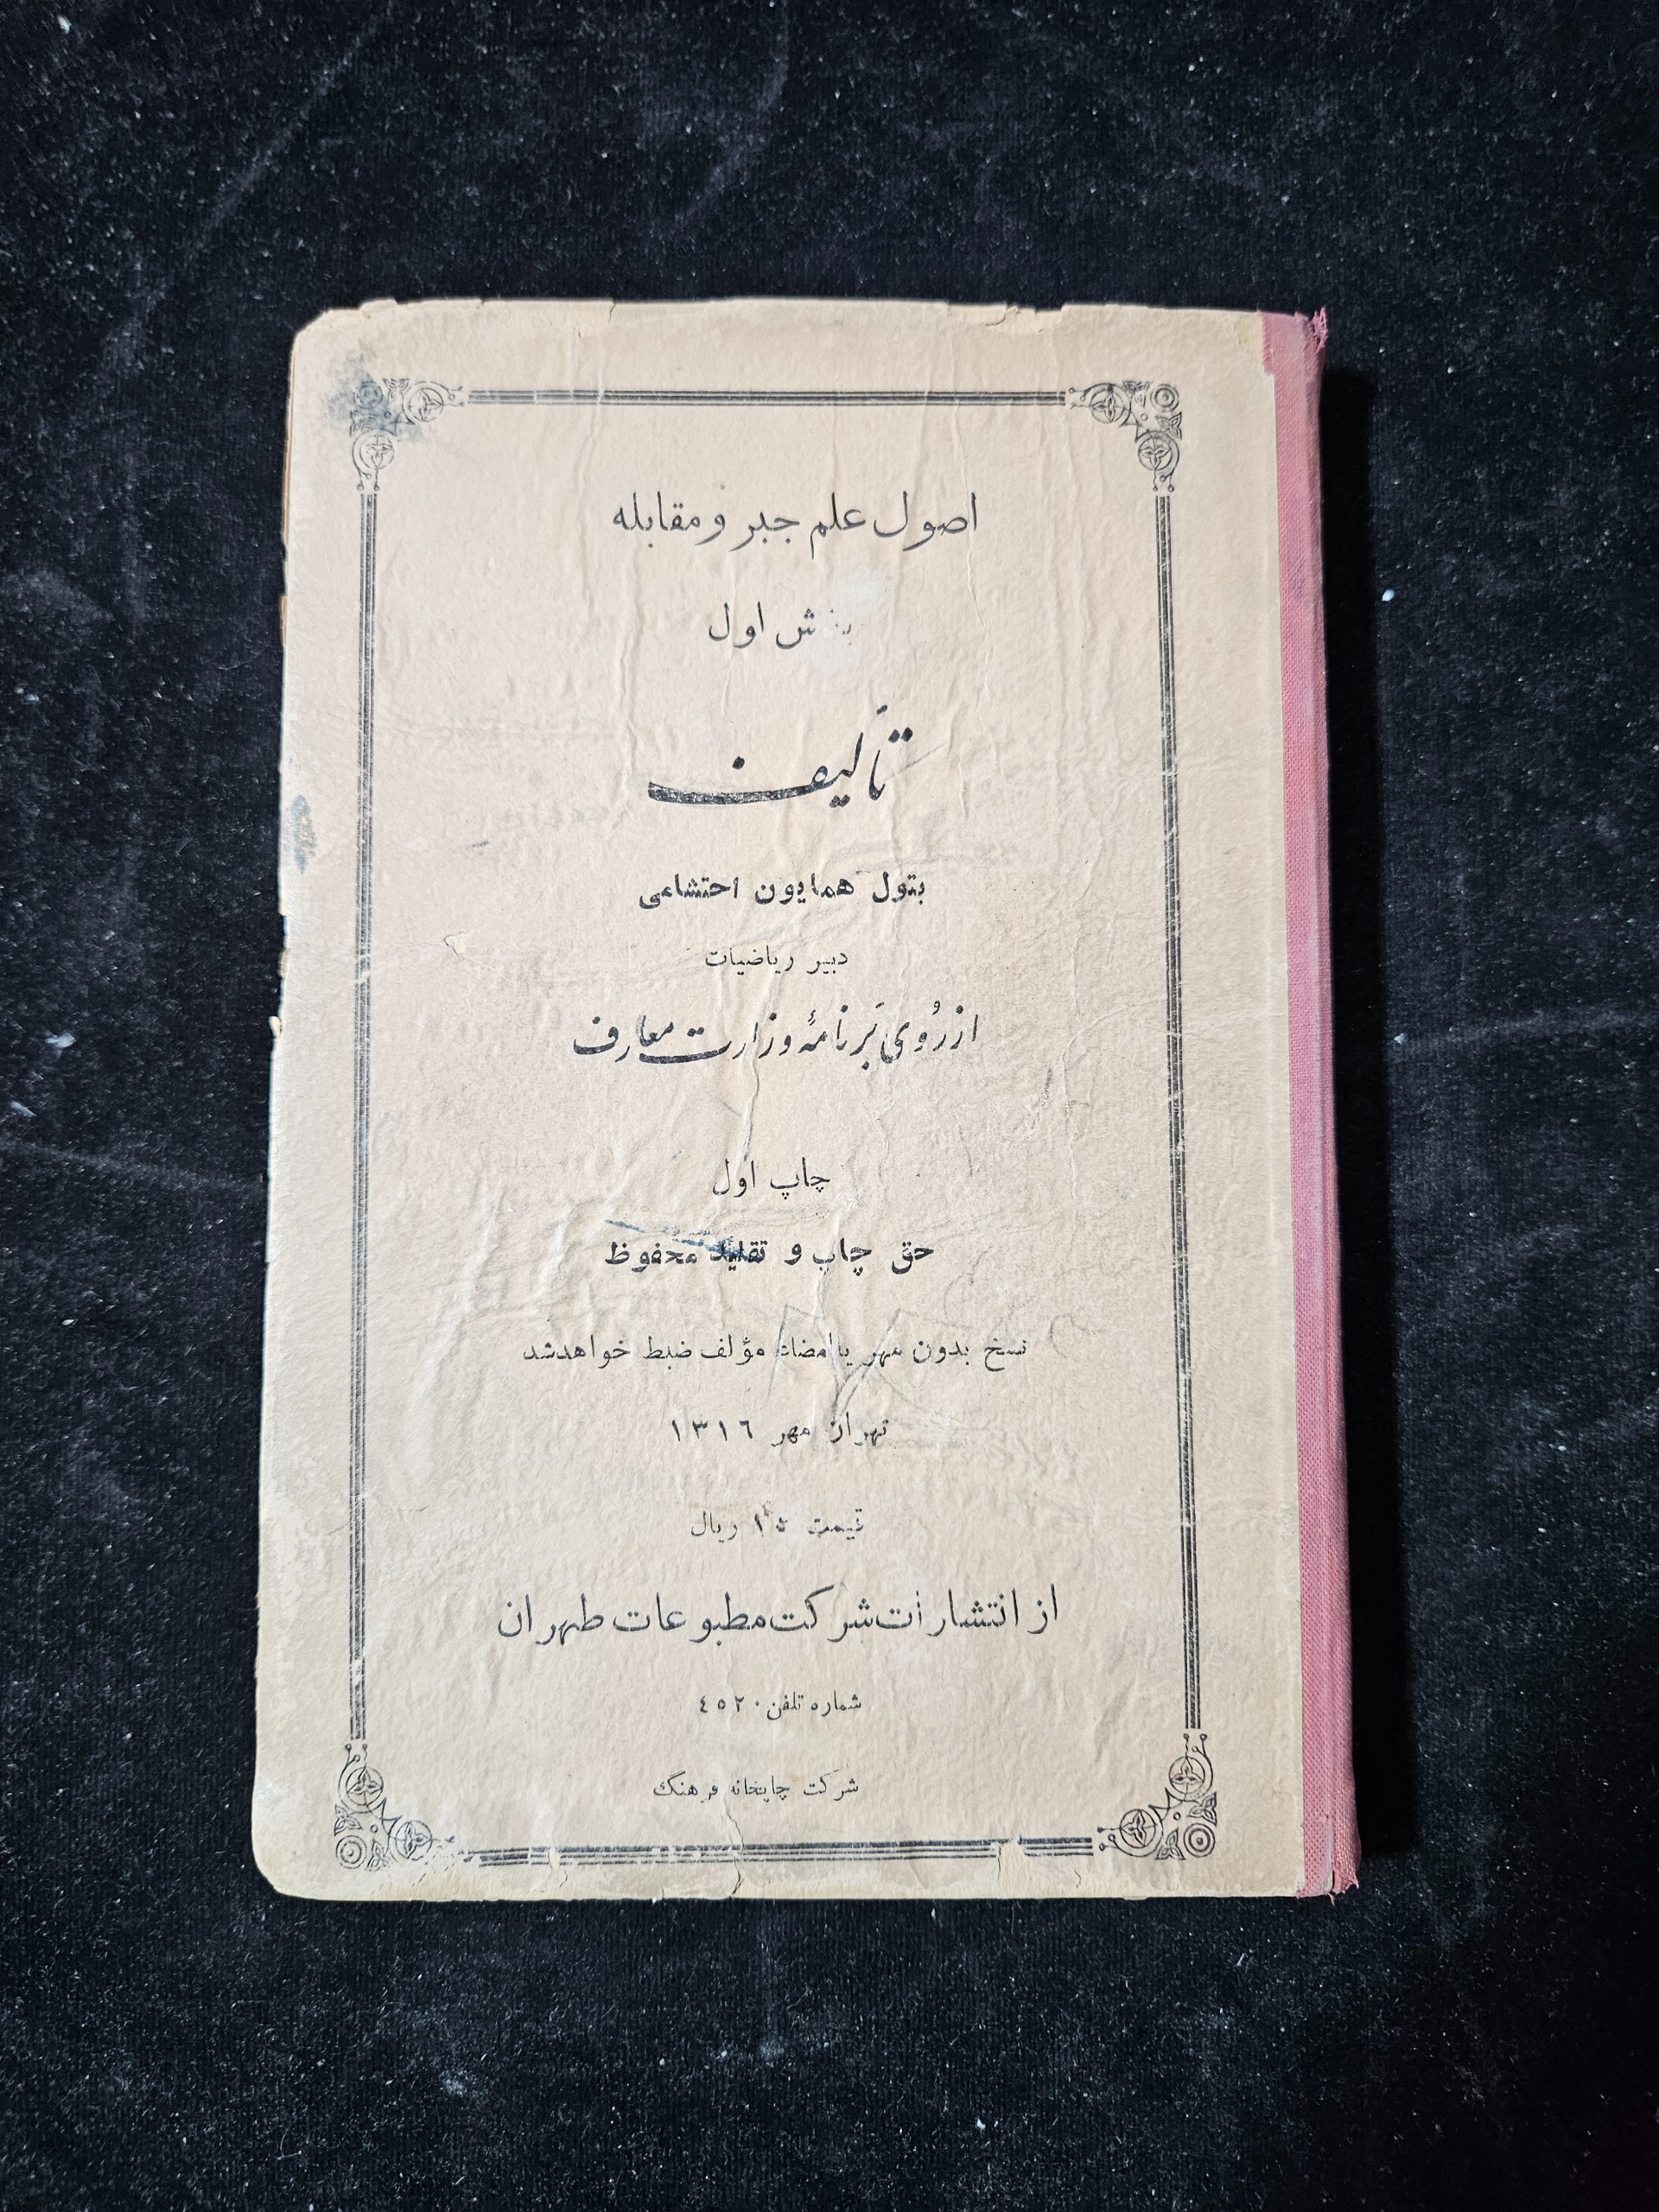 اصول علم جبر و مقابله
بخش اول
تألیف
بتول همایون احتشامی
دبیر ریاضیات
از رُوی بَرنامهٔ وزارت معارف
چاپ اول
حق چاپ و تقلید محفوظ
نسخ بدون مهر یا امضاء مؤلف ضبط خواهد شد
تهران مهر ١٣١٦
قیمت ریال
از انتشارات شرکت مطبوعات طهران
شماره تلفن ٤٥٢٠
شرکت چاپخانه فرهنگ